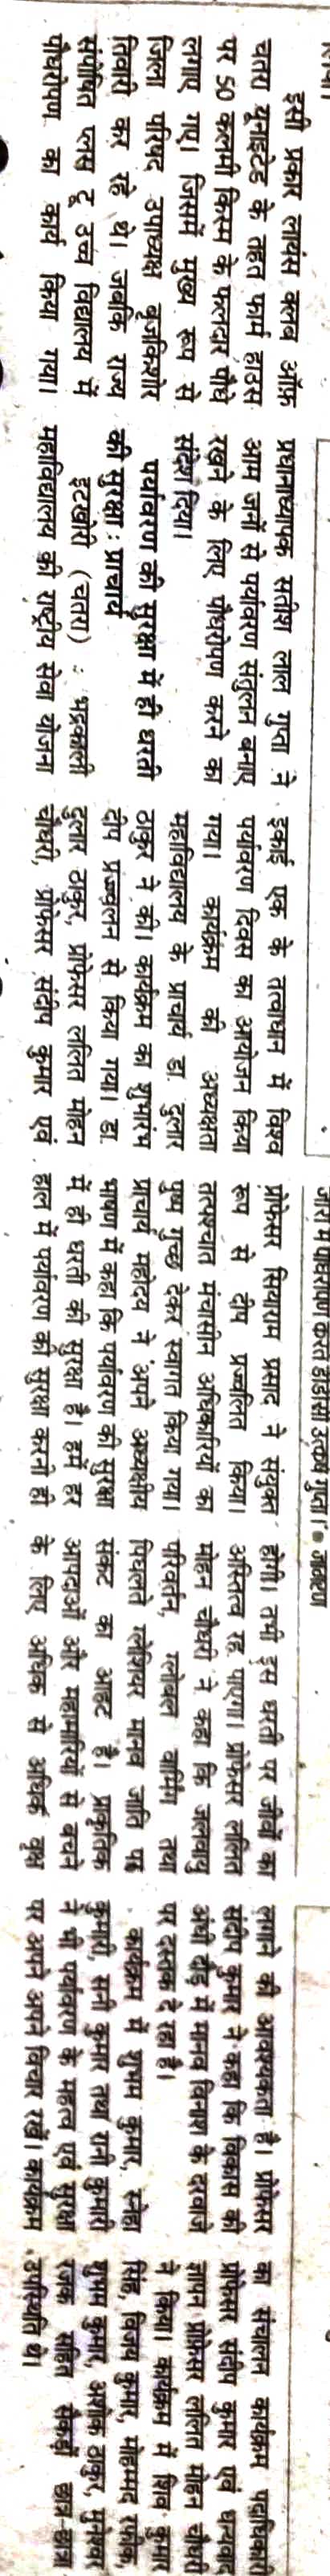 इसी प्रकार लायंस क्लब ऑफ
चतरा यूनाइटेड के तहत फार्म हाउस
पर 50 कलमी किस्म के फलदार पौधे
लगाए गए। जिसमें मुख्य रूप से
जिला परिषद उपाध्यक्ष बृजकिशोर
तिवारी कर रहे थे। जबकि राज्य
संपोषित प्लस टू उच्च विद्यालय में
पौधरोपण का कार्य किया गया।
प्रधानाध्यापक सतीश लाल गुप्ता ने
आम जनों से पर्यावरण संतुलन बनाए
रखने के लिए पौधरोपण करने का
संदेश दिया।
पर्यावरण की सुरक्षा में ही धरती
की सुरक्षा : प्राचार्य
इटखोरी (चतरा) : भद्रकाली
महाविद्यालय की राष्ट्रीय सेवा योजना
इकाई एक के तत्वाधान में विश्व
पर्यावरण दिवस का आयोजन किया
गया। कार्यक्रम की अध्यक्षता
महाविद्यालय के प्राचार्य डा. दुलार
ठाकुर ने की। कार्यक्रम का शुभारंभ
दीप प्रज्वलन से किया गया। डा.
दुलार ठाकुर, प्रोफेसर ललित मोहन
चौधरी, प्रोफेसर संदीप कुमार एवं
पौधरोपण करते डीडीसी उत्कर्ष गुप्ता। ● जागरण
प्रोफेसर सियाराम प्रसाद ने संयुक्त
रूप से दीप प्रज्वलित किया।
तत्पश्चात मंचासीन अधिकारियों का
पुष्प गुच्छ देकर स्वागत किया गया।
प्राचार्य महोदय ने अपने अध्यक्षीय
भाषण में कहा कि पर्यावरण की सुरक्षा
में ही धरती की सुरक्षा है। हमें हर
हाल में पर्यावरण की सुरक्षा करनी ही
होगी। तभी इस धरती पर जीवों का
अस्तित्व रह पाएगा। प्रोफेसर ललित
मोहन चौधरी ने कहा कि जलवायु
परिवर्तन, ग्लोबल वार्मिंग तथा
पिघलते ग्लेशियर मानव जाति पर
संकट का आहट है। प्राकृतिक
आपदाओं और महामारियों से बचने
के लिए अधिक से अधिक वृक्ष
लगाने की आवश्यकता है। प्रोफेसर
संदीप कुमार ने कहा कि विकास की
अंधी दौड़ में मानव विनाश के दरवाजे
पर दस्तक दे रहा है।
कार्यक्रम में शुभम कुमार, स्नेहा
कुमारी, सनी कुमार तथा रानी कुमारी
ने भी पर्यावरण के महत्व एवं सुरक्षा
पर अपने अपने विचार रखें। कार्यक्रम
का संचालन कार्यक्रम पदाधिकारी
प्रोफेसर संदीप कुमार एवं धन्यवाद
ज्ञापन प्रोफेसर ललित मोहन चौधरी
ने किया। कार्यक्रम में शिव कुमार
सिंह, विजय कुमार, मोहम्मद रफीक,
शुभम कुमार, अशोक ठाकुर, मुनेश्वर
रजक सहित सैकड़ों छात्र-छात्रा
उपस्थिति थे।